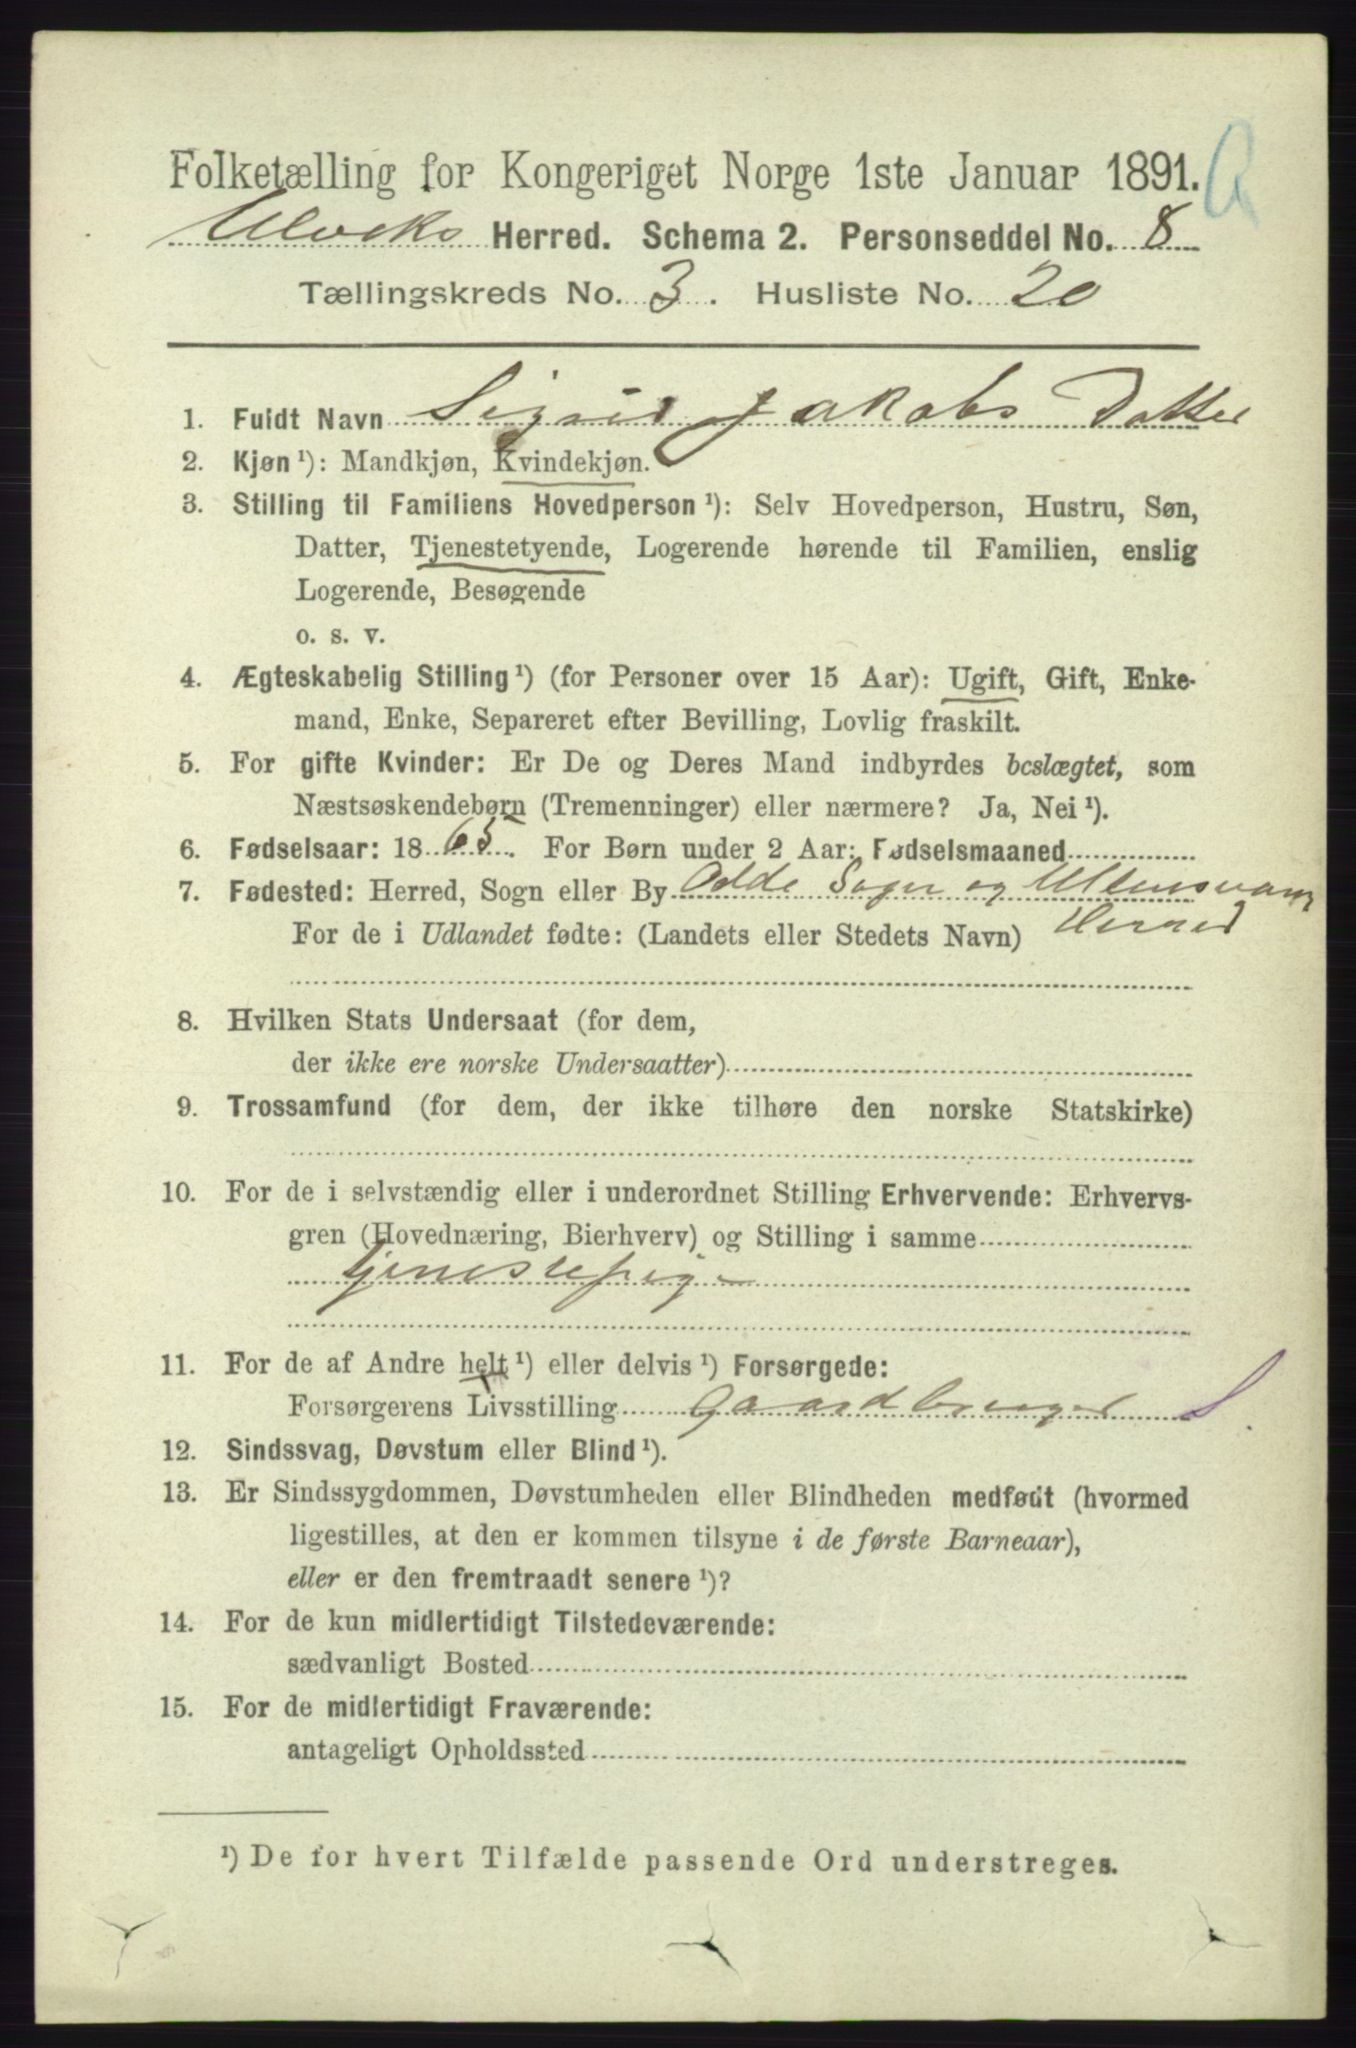 Folketælling for Kongeriget Norge 1ste Januar 1891.
Ulviks Herred. Schema 2. Personseddel No. 8
Tællingskreds No. 3. Husliste No. 20
1. Fuldt Navn Sigrid Jakobs Datter
2. Kjøn ¹): Mandkjøn, Kvindekjøn.
3. Stilling til Familiens Hovedperson ¹): Selv Hovedperson, Hustru, Søn,
Datter, Tjenestetyende, Logerende hørende til Familien, enslig
Logerende, Besøgende
o. s. v.
4. Ægteskabelig Stilling ¹) (for Personer over 15 Aar): Ugift, Gift, Enke-
mand, Enke, Separeret efter Bevilling, Lovlig fraskilt.
5. For gifte Kvinder: Er De og Deres Mand indbyrdes beslægtet, som
Næstsøskendebørn (Tremenninger) eller nærmere? Ja, Nei ¹).
6. Fødselsaar: 1865. For Børn under 2 Aar: Fødselsmaaned
7. Fødested: Herred, Sogn eller By Odde Sogn og Ullensvang
For de i Udlandet fødte: (Landets eller Stedets Navn) Herred
8. Hvilken Stats Undersaat (for dem,
der ikke ere norske Undersaatter)
9. Trossamfund (for dem, der ikke tilhøre den norske Statskirke)
10. For de i selvstændig eller i underordnet Stilling Erhvervende: Erhvervs-
gren (Hovednæring, Bierhverv) og Stilling i samme
tjenestepige
11. For de af Andre helt ¹) eller delvis ¹) Forsørgede:
Forsørgerens Livsstilling Gaardbruger S.
12. Sindssvag, Døvstum eller Blind ¹).
13. Er Sindssygdommen, Døvstumheden eller Blindheden medfødt (hvormed
ligestilles, at den er kommen tilsyne i de første Barneaar),
eller er den fremtraadt senere ¹)?
14. For de kun midlertidigt Tilstedeværende:
sædvanligt Bosted
15. For de midlertidigt Fraværende:
antageligt Opholdssted
¹) De for hvert Tilfælde passende Ord understreges.